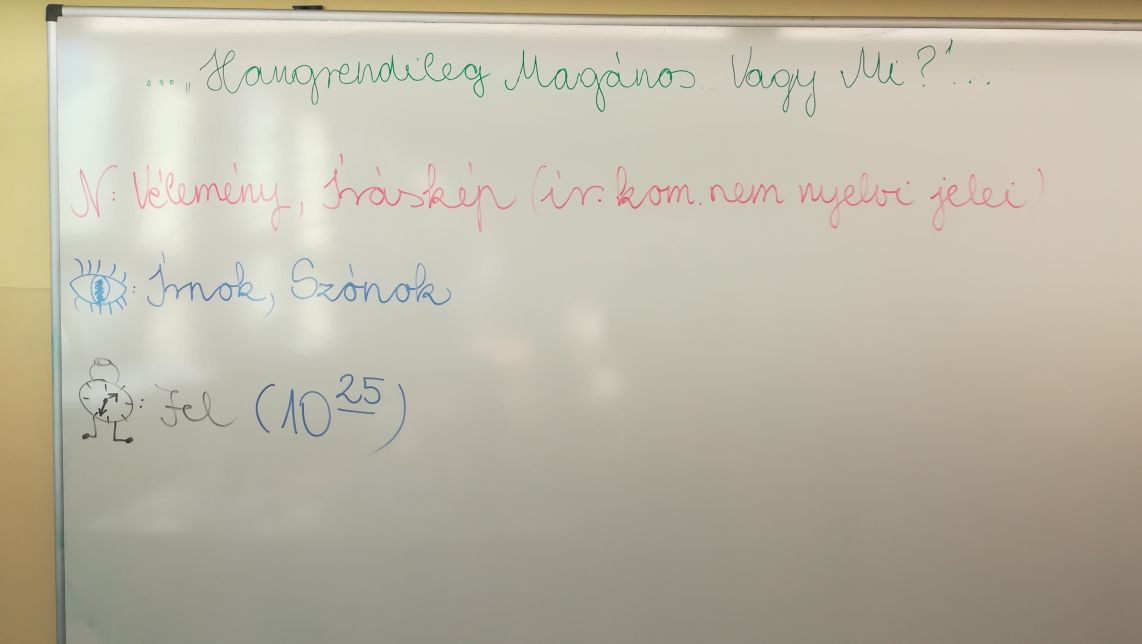 ..."Hangrendileg Magános... Vagy Mi?"...
N: Vélemény, Íráskép (ír. kom. nem nyelvi jelei)
: Írnok, Szónok
: Jel (10 25)